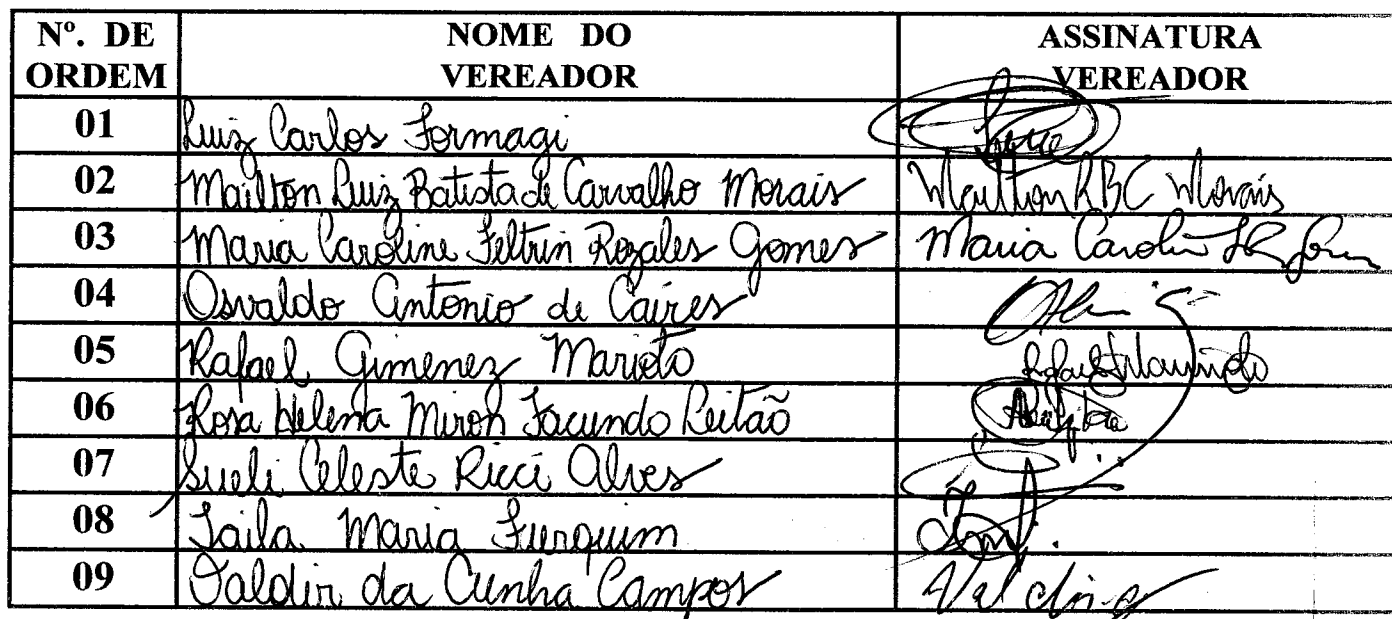 Nº. DE ORDEM NOME DO VEREADOR ASSINATURA VEREADOR
01 Luiz Carlos Formagi
02 Mailton Luiz Batista de Carvalho Morais Mailton LBC Morais
03 Maria Caroline Feltrin Rozales Gomes Maria Carolin
04 Osvaldo Antonio de Caires
05 Rafael Gimenez Marioto
06 Rosa Helena Miron Facundo Leitão
07 Sueli Celeste Ricci Alves
08 Taila Maria Furquim
09 Valdir da Cunha Campos